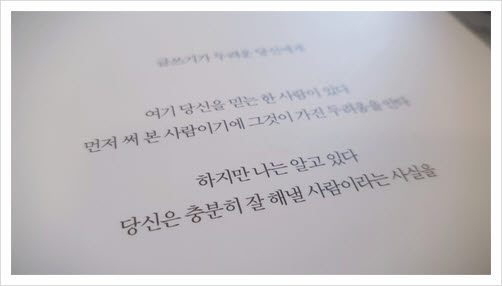 글쓰기가 두려운 당신에게
여기 당신을 믿는 한 사람이 있다
먼저 써 본 사람이기에 그것이 가진 두려움을 안다
하지만 나는 알고 있다
당신은 충분히 잘 해낼 사람이라는 사실을